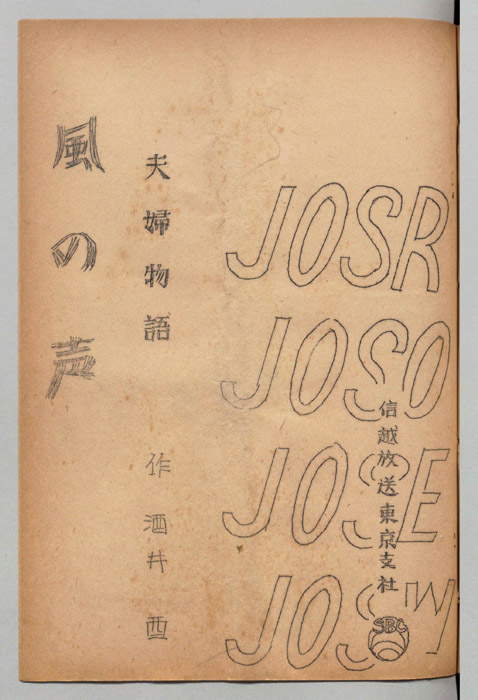 JOSR
JOSO
JOSE
JOSW
信越放送東京支社
SBC
夫婦物語
作 酒井 酉
風の声